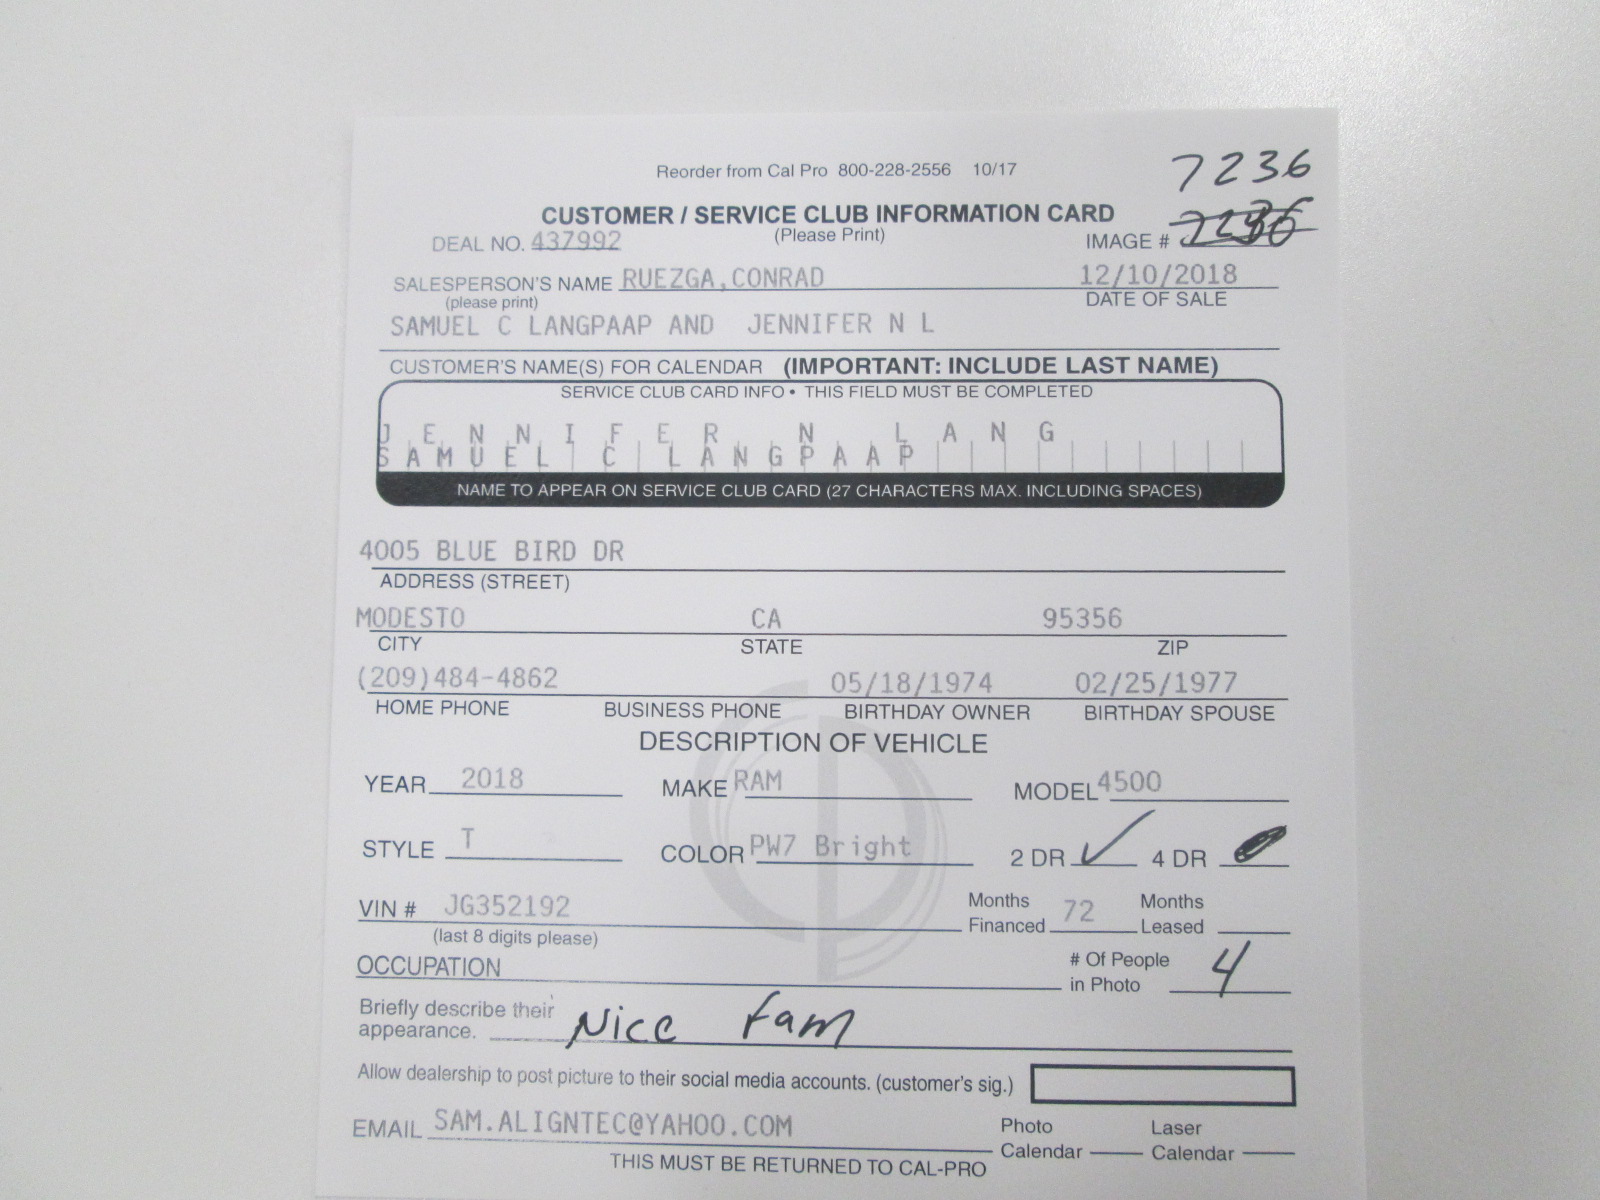 Reorder from Cal Pro 800-228-2556 10/17
7236
CUSTOMER / SERVICE CLUB INFORMATION CARD
(Please Print)
DEAL NO. 437992 IMAGE #
SALESPERSON'S NAME RUEZGA,CONRAD 12/10/2018
(please print) DATE OF SALE
SAMUEL C LANGPAAP AND JENNIFER N L
CUSTOMER'S NAME(S) FOR CALENDAR (IMPORTANT: INCLUDE LAST NAME)
SERVICE CLUB CARD INFO • THIS FIELD MUST BE COMPLETED
JENNIFER N LANG
SAMUEL C LANGPAAP
NAME TO APPEAR ON SERVICE CLUB CARD (27 CHARACTERS MAX. INCLUDING SPACES)
4005 BLUE BIRD DR
ADDRESS (STREET)
MODESTO CA 95356
CITY STATE ZIP
(209)484-4862 05/18/1974 02/25/1977
HOME PHONE BUSINESS PHONE BIRTHDAY OWNER BIRTHDAY SPOUSE
DESCRIPTION OF VEHICLE
YEAR 2018 MAKE RAM MODEL 4500
STYLE T COLOR PW7 Bright 2 DR ✓ 4 DR
VIN # JG352192 Months Financed 72 Months Leased
(last 8 digits please)
OCCUPATION # Of People in Photo 4
Briefly describe their appearance. Nice fam
Allow dealership to post picture to their social media accounts. (customer's sig.)
EMAIL SAM.ALIGNTEC@YAHOO.COM Photo Calendar Laser Calendar
THIS MUST BE RETURNED TO CAL-PRO